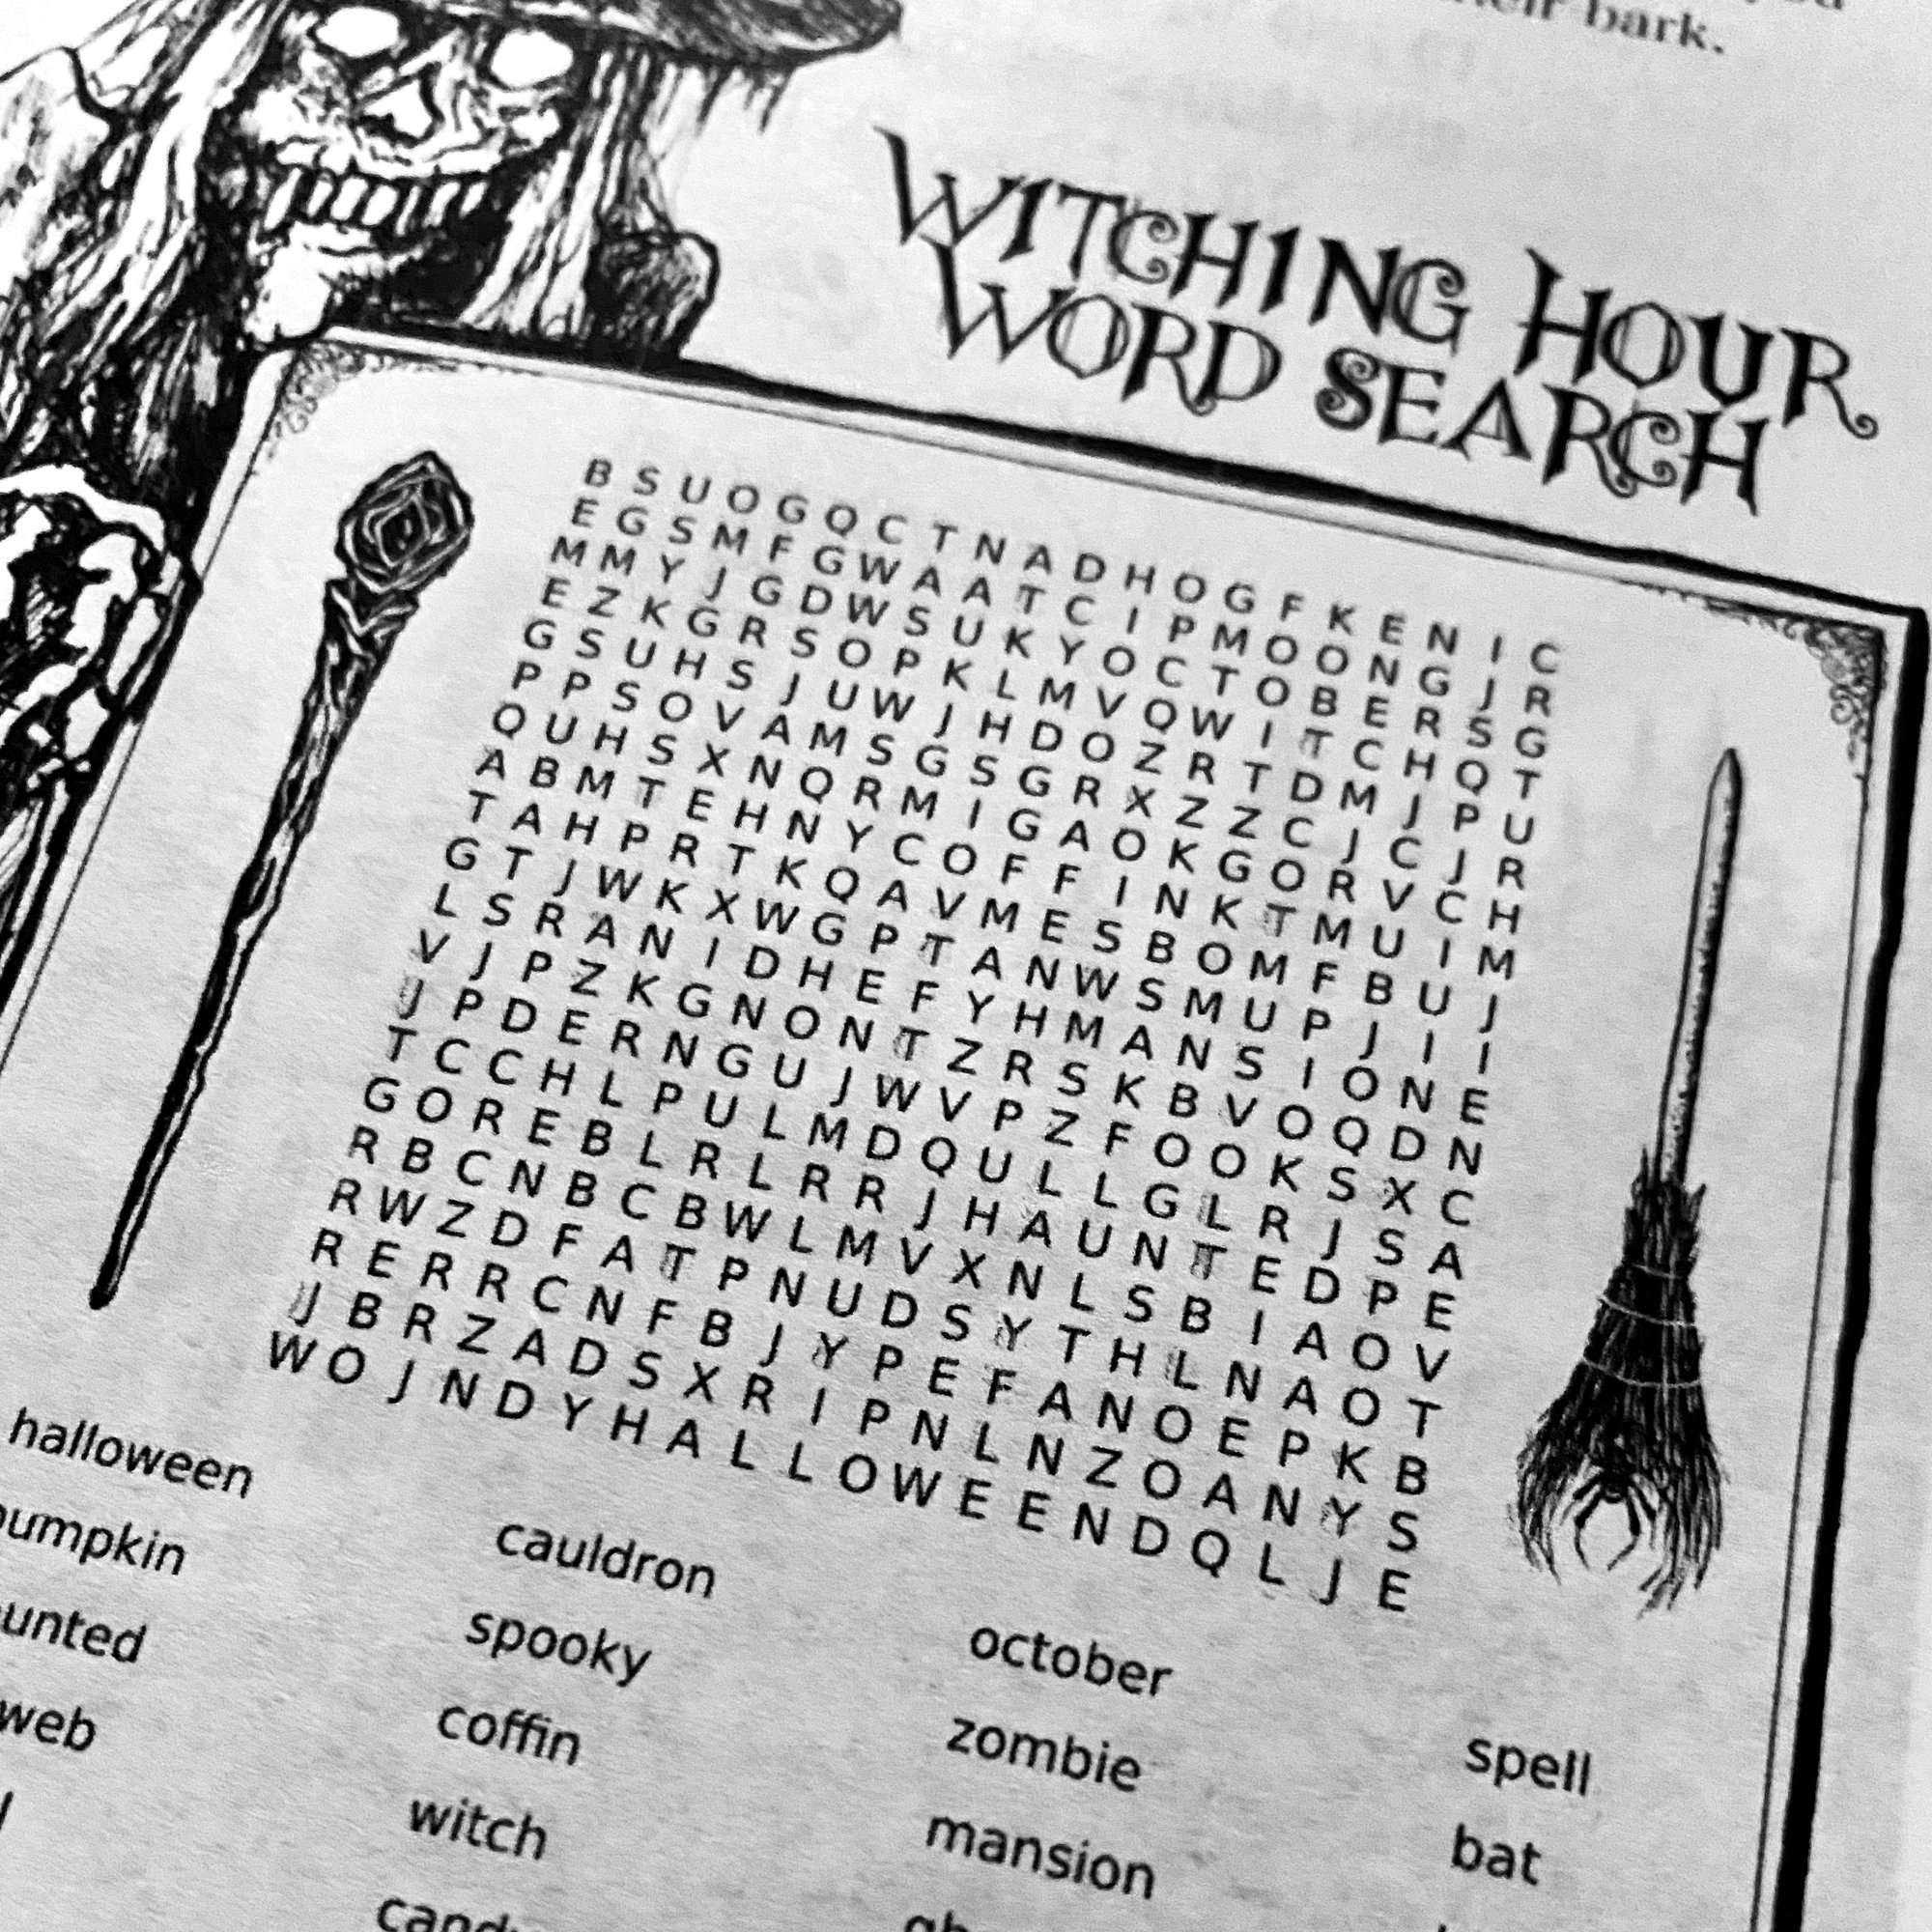 bark.
WITCHING HOUR
WORD SEARCH
B S U O G Q C T N A D H O G F K E N I C
E G S M F G W A A T C I P M O O N G J R
M M Y J G D W S U K Y O C T O B E R S G
E Z K G R S O P K L M V Q W I T C H Q T
G S U H S J U W J H D O Z R T D M J P U
P P S O V A M S G S G R X Z Z C J C J R
Q U H S X N Q R M I G A O K G O R V C H
A B M T E H N Y C O F F I N K T M U I M
T A H P R T K Q A V M E S B O M F B U J
G T J W K X W G P T A N W S M U P J I I
L S R A N I D H E F Y H M A N S I O N E
V J P Z K G N O N T Z R S K B V O Q D N
J P D E R N G U J W V P Z F O O K S X C
T C C H L P U L M D Q U L L G L R J S A
G O R E B L R L R R J H A U N T E D P E
R B C N B C B W L M V X N L S B I A O V
R W Z D F A T P N U D S Y T H L N A O T
R E R R C N F B J Y P E F A N O E P K B
J B R Z A D S X R I P N L N Z O A N Y S
W O J N D Y H A L L O W E E N D Q L J E
halloween cauldron october spell
pumpkin spooky zombie bat
unted coffin mansion
web witch